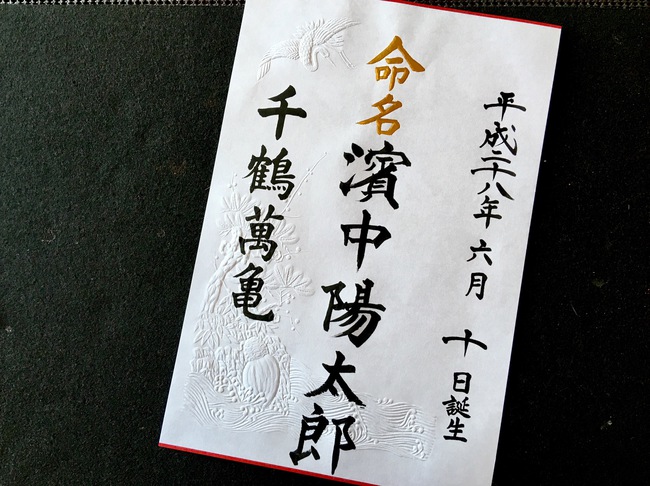 平成二十八年 六月 十日誕生
命名 濱中陽太郎
千鶴萬亀